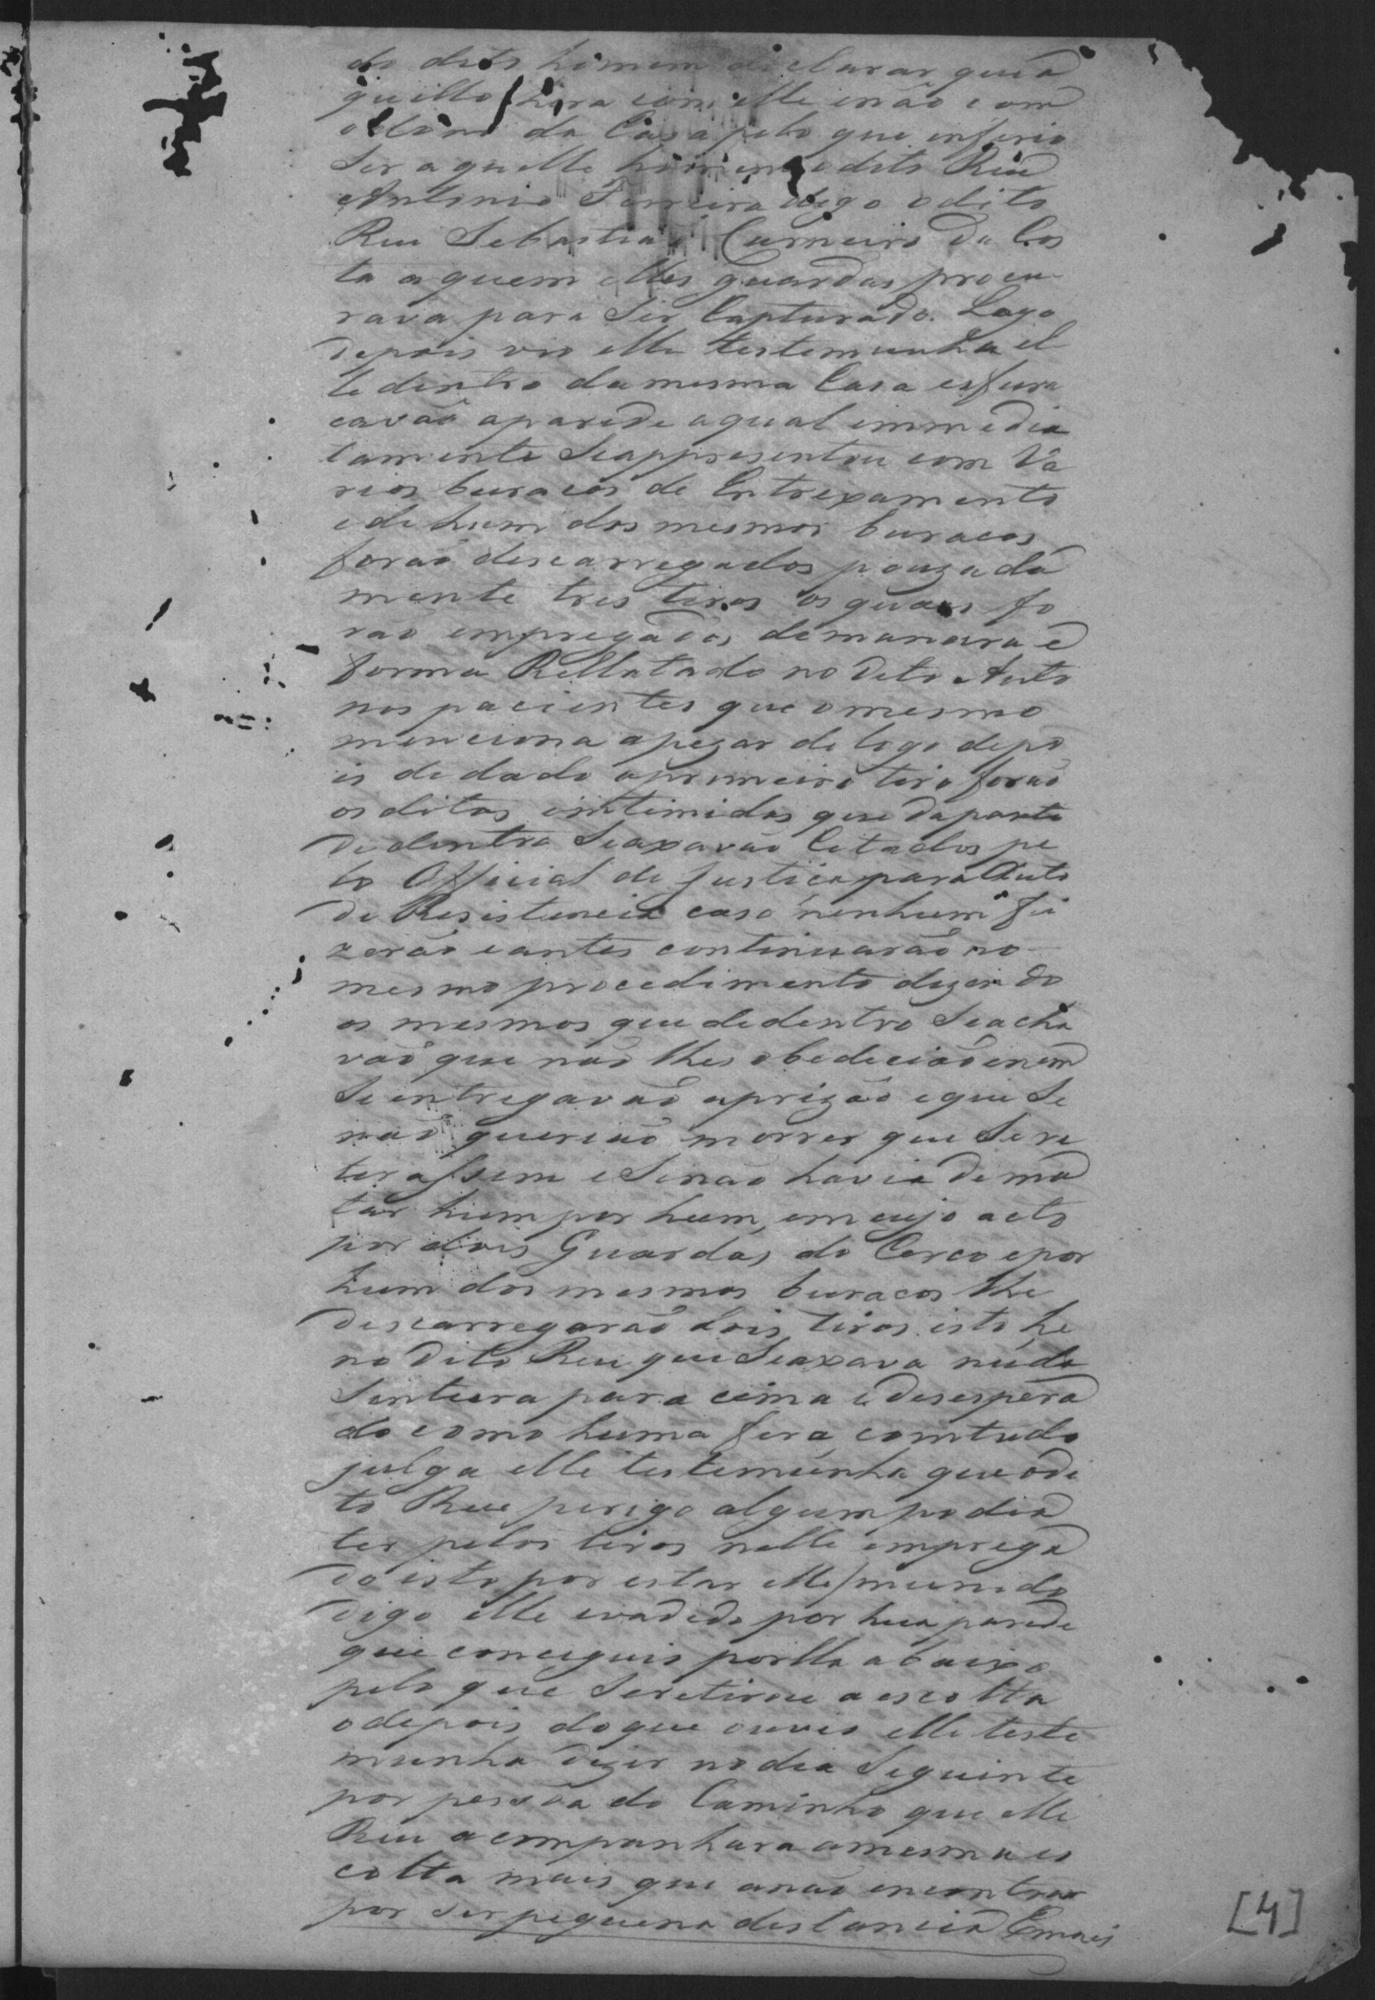 do dito homem declarar que a
quillo hera com elle e não com
o dono da Casa pelo que inferio
Ser aquelle homem o dito Reu
Antonio Ferreira digo o dito
Reu Sebastião Carneiro da Cos
ta a quem elles guardas procu
rava para Ser Capturado. Logo
depois vio elle testemunha el
le dentro da mesma Casa esfura
cavão a parede a qual immedia
tamente Seappresentou com Va
rios buracos de Entrexamento
e de hum dos mesmos buracos
forão descarregados pouzada
mente tres tiros os quaes fo
rão empregados, de maneira e
forma Rellatado no dito Auto
nos pacientes que o mesmo
menciona apezar de logo depo
is de dado o primeiro tiro forão
os ditos intimidos que da parte
de dentro Seaxavão Citados pe
lo Official de Justiça para Auto
de Resistencia caso nenhum fi
zerão e antes continuarão no
mesmo procedimento dizendo
os mesmos que de dentro Seacha
vão que não lhes obedecião e nem
Se entregavão a prizão e que Se
não querião morrer que Sere
tirassem e Senão havia de ma
tar hum por hum, em cujo acto
por dois Guardas do Cerco e por
hum dos mesmos buracos lhe
descarregarão dois tiros isto he
no dito Reu que Seaxava nú da
Sintura para cima e desespera
do como huma fera, comtudo
julga elle testemunha que o di
to Reu perigo algum podia
ter pelos tiros nelle emprega
do isto por estar elle munido
digo elle evadido por hua parede
que conciguio por lla abaixo
pelo que Seretirou a escolta
e depois do que ouvio elle teste
munha dizer no dia Seguinte
por pessoa do Caminho que elle
Reu acompanhara a mesma es
colta mais que a não encontrar
por Ser pequena distancia E mais
[4]